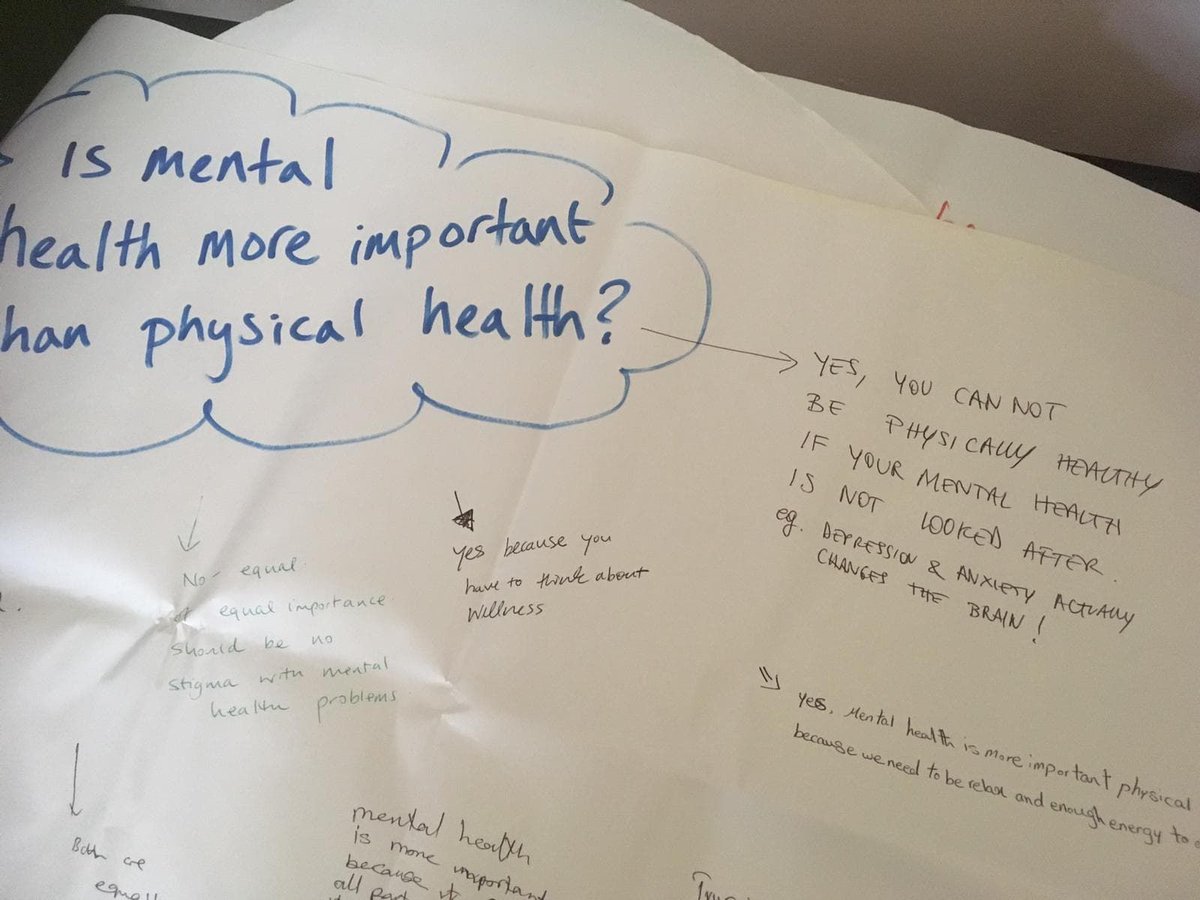 Is mental
health more important
han physical health?
YES, YOU CAN NOT
BE PHYSICALLY HEALTHY
IF YOUR MENTAL HEALTH
IS NOT LOOKED AFTER.
eg. DEPRESSION & ANXIETY ACTUALLY
CHANGES THE BRAIN!
No - equal
equal importance
should be no
stigma with mental
health problems
yes because you
have to think about
Willness
yes, Mental health is more important physical
because we need to be relax and enough energy to
Both are
mental health
is more important
because it
all